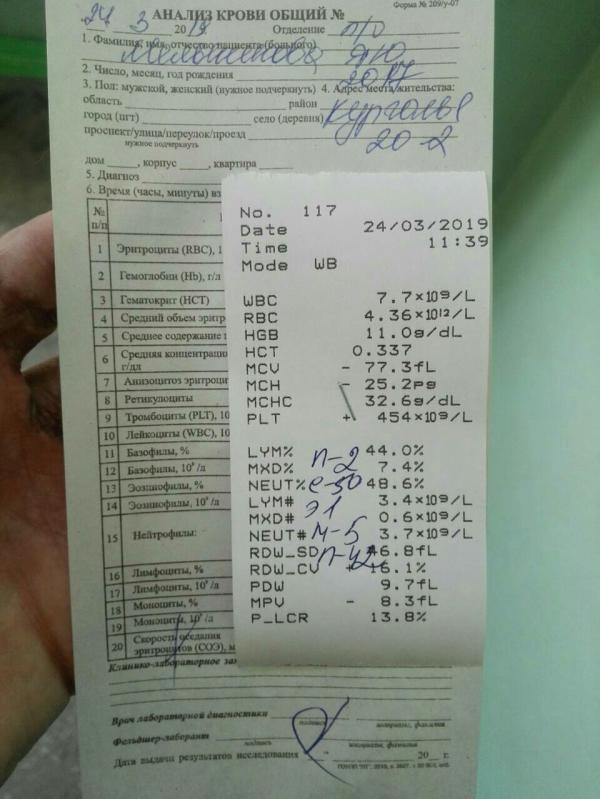 Форма № 209/у-07
АНАЛИЗ КРОВИ ОБЩИЙ №
24 3 2019. Отделение п/о
1. Фамилия, имя, отчество пациента (больного)
2. Число, месяц, год рождения 2017
3. Пол: мужской, женский (нужное подчеркнуть) 4. Адрес места жительства:
область район
город (пгт) село (деревня)
проспект/улица/переулок/проезд 20-2
нужное подчеркнуть
дом , корпус , квартира
5. Диагноз
6. Время (часы, минуты) вз
№ п/п
1 Эритроциты (RBC), 1
2 Гемоглобин (Hb), г/л
3 Гематокрит (HCT)
4 Средний объем эритр
5 Среднее содержание
6 Средняя концентраци
г/дл
7 Анизоцитоз эритроци
8 Ретикулоциты
9 Тромбоциты (PLT), 10
10 Лейкоциты (WBC), 10
11 Базофилы, %
12 Базофилы, 10⁹/л
13 Эозинофилы, %
14 Эозинофилы, 10⁹/л
15 Нейтрофилы:
16 Лимфоциты, %
17 Лимфоциты, 10⁹/л
18 Моноциты, %
19 Моноциты, 10
20 Скорость оседания
эритроцитов (СОЭ), м
Клинико-лабораторное за
No. 117
Date 24/03/2019
Time 11:39
Mode WB
WBC 7.7×10⁹/L
RBC 4.36×10¹²/L
HGB 11.0g/dL
HCT 0.337
MCV - 77.3fL
MCH - 25.2pg
MCHC 32.6g/dL
PLT + 454×10⁹/L
LYM% 44.0%
MXD% п-2 7.4%
NEUT% с-50 48.6%
LYM# 3.4×10⁹/L
MXD# э1 0.6×10⁹/L
NEUT# м-5 3.7×10⁹/L
RDW_SD 46.8fL
RDW_CV + 16.1%
PDW 9.7fL
MPV - 8.3fL
P_LCR 13.8%
Врач лабораторной диагностики
подпись инициалы, фамилия
Фельдшер-лаборант
подпись инициалы, фамилия
Дата выдачи результатов исследования 20 г.